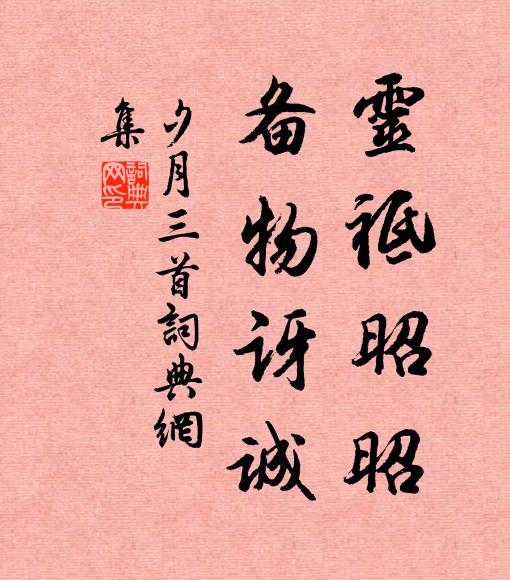 靈祗昭昭
备物讶诚
夕月三首詞典網
集
詞典
网印